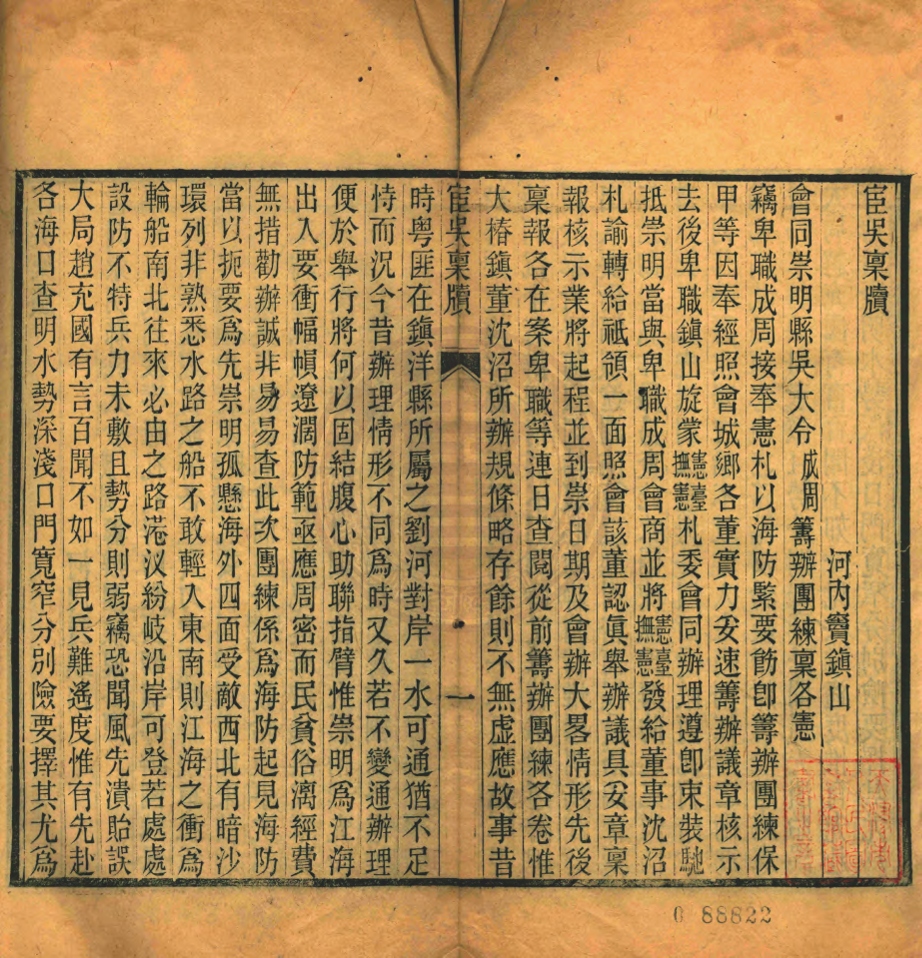 宦吳稟牘
河內竇鎮山
會同崇明縣吳大令成周籌辦團練稟各憲
竊卑職成周接奉憲札以海防緊要飭卽籌辦團練保
甲等因奉經照會城鄉各董實力妥速籌辦議章核示
去後卑職鎮山旋蒙憲臺撫憲札委會同辦理遵卽束裝馳
抵崇明當與卑職成周會商並將憲臺撫憲發給董事沈沼
札諭轉給祇領一面照會該董認眞舉辦議具妥章稟
報核示業將起程並到崇日期及會辦大畧情形先後
稟報各在案卑職等連日查閱從前籌辦團練各卷惟
大椿鎮董沈沼所辦規條略存餘則不無虛應故事昔
宦吳稟牘
一
時粤匪在鎮洋縣所屬之劉河對岸一水可通猶不足
恃而況今昔辦理情形不同爲時又久若不變通辦理
便於舉行將何以固結腹心助聯指臂惟崇明爲江海
出入要衝幅幀遼濶防範亟應周密而民貧俗漓經費
無措勸辦誠非易易查此次團練係爲海防起見海防
當以扼要爲先崇明孤懸海外四面受敵西北有暗沙
環列非熟悉水路之船不敢輕入東南則江海之衝爲
輪船南北往來必由之路港汊紛岐沿岸可登若處處
設防不特兵力未敷且勢分則弱竊恐聞風先潰貽誤
大局趙充國有言百聞不如一見兵難遙度惟有先赴
各海口查明水勢深淺口門寬窄分別險要擇其尤爲
0 88822